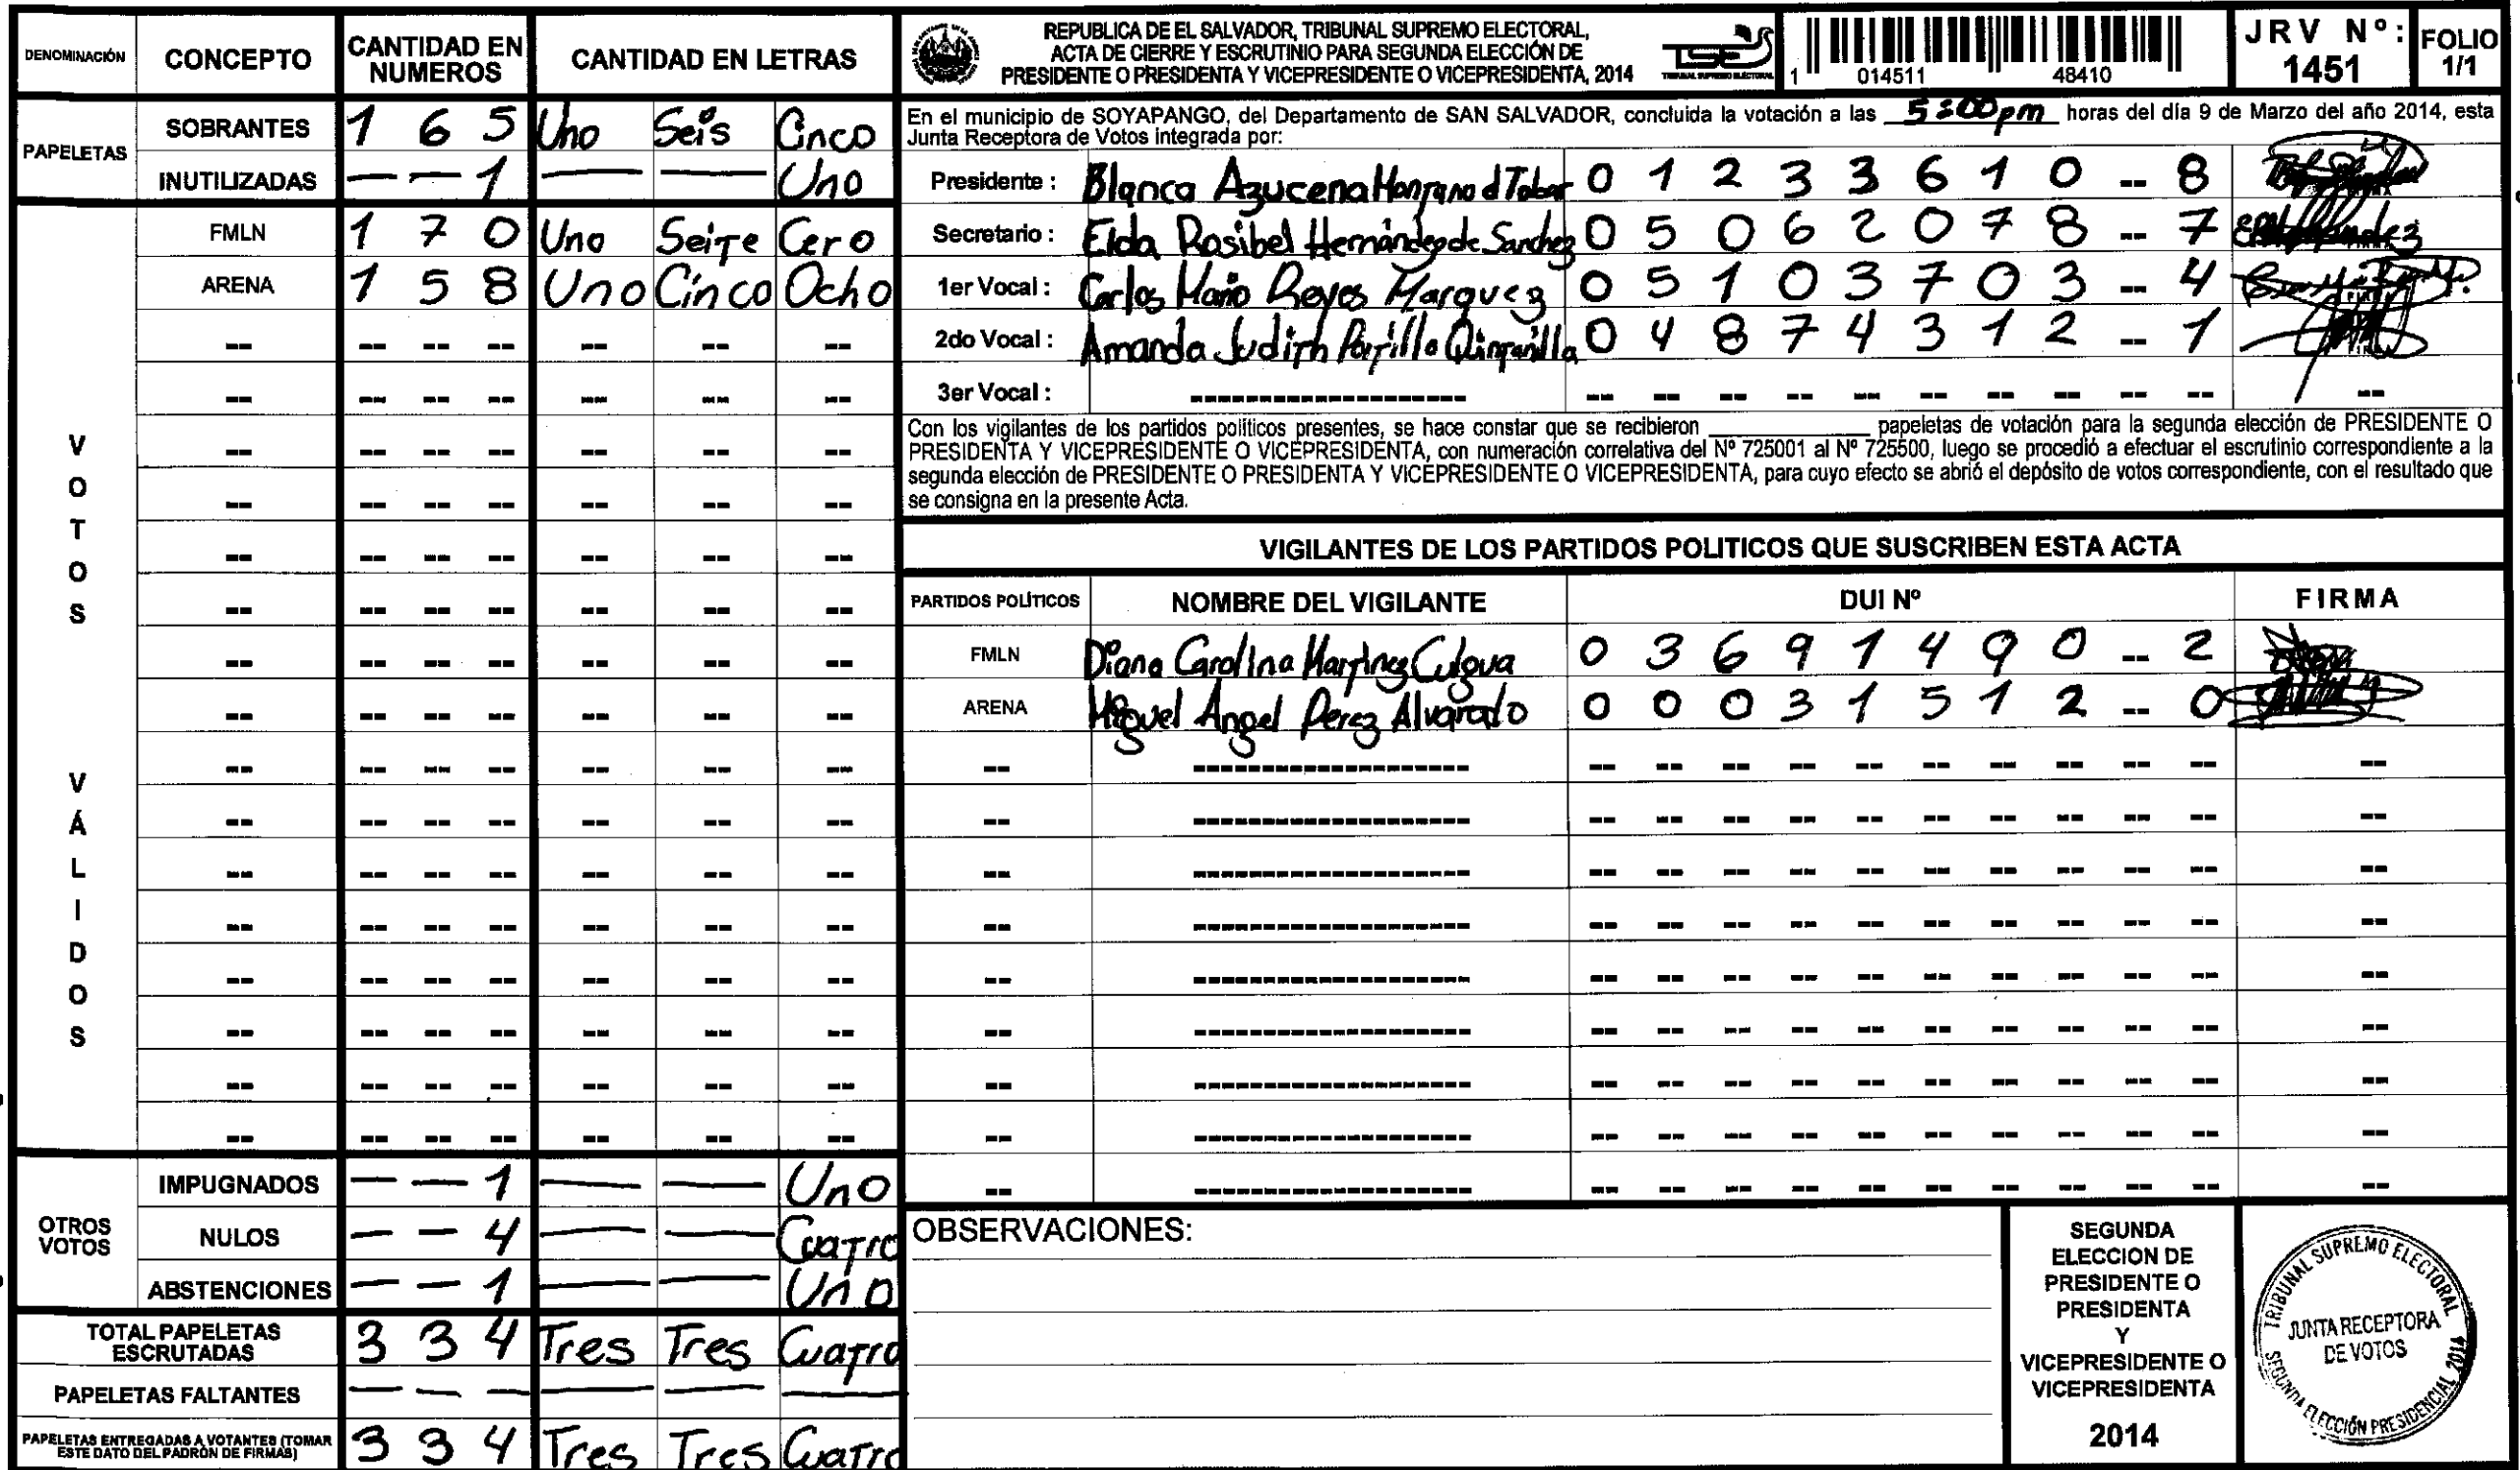 DENOMINACIÓN CONCEPTO CANTIDAD EN NUMEROS CANTIDAD EN LETRAS
PAPELETAS
SOBRANTES 1 6 5 Uno Seis Cinco
INUTILIZADAS — — 1 — — Uno
VOTOS VÁLIDOS
FMLN 1 7 0 Uno Seite Cero
ARENA 1 5 8 Uno Cinco Ocho
OTROS VOTOS
IMPUGNADOS — — 1 — — Uno
NULOS — — 4 — — Cuatro
ABSTENCIONES — — 1 — — Uno
TOTAL PAPELETAS ESCRUTADAS 3 3 4 Tres Tres Cuatro
PAPELETAS FALTANTES — — — — — —
PAPELETAS ENTREGADAS A VOTANTES (TOMAR ESTE DATO DEL PADRÓN DE FIRMAS) 3 3 4 Tres Tres Cuatro
REPUBLICA DE EL SALVADOR, TRIBUNAL SUPREMO ELECTORAL,
ACTA DE CIERRE Y ESCRUTINIO PARA SEGUNDA ELECCIÓN DE
PRESIDENTE O PRESIDENTA Y VICEPRESIDENTE O VICEPRESIDENTA, 2014
TSE
TRIBUNAL SUPREMO ELECTORAL
1 014511 48410
JRV Nº: 1451
FOLIO 1/1
En el municipio de SOYAPANGO, del Departamento de SAN SALVADOR, concluida la votación a las 5:00 pm horas del día 9 de Marzo del año 2014, esta
Junta Receptora de Votos integrada por:
Presidente : Blanca Azucena Manzano d Tobar 0 1 2 3 3 6 1 0 -- 8
Secretario : Elda Rosibel Hernández de Sanchez 0 5 0 6 2 0 7 8 -- 7
1er Vocal : Carlos Mario Reyes Marquez 0 5 1 0 3 7 0 3 -- 4
2do Vocal : Amanda Judith Portillo Quintanilla 0 4 8 7 4 3 1 2 -- 1
3er Vocal : -- -- -- -- -- -- -- -- -- --
Con los vigilantes de los partidos políticos presentes, se hace constar que se recibieron ________ papeletas de votación para la segunda elección de PRESIDENTE O
PRESIDENTA Y VICEPRESIDENTE O VICEPRESIDENTA, con numeración correlativa del Nº 725001 al Nº 725500, luego se procedió a efectuar el escrutinio correspondiente a la
segunda elección de PRESIDENTE O PRESIDENTA Y VICEPRESIDENTE O VICEPRESIDENTA, para cuyo efecto se abrió el depósito de votos correspondiente, con el resultado que
se consigna en la presente Acta.
VIGILANTES DE LOS PARTIDOS POLITICOS QUE SUSCRIBEN ESTA ACTA
PARTIDOS POLÍTICOS NOMBRE DEL VIGILANTE DUI Nº FIRMA
FMLN Diana Carolina Martinez 0 3 6 9 1 4 9 0 -- 2
ARENA Miguel Angel Perez Alvarado 0 0 0 3 1 5 1 2 -- 0
OBSERVACIONES:
SEGUNDA
ELECCION DE
PRESIDENTE O
PRESIDENTA
Y
VICEPRESIDENTE O
VICEPRESIDENTA
2014
TRIBUNAL SUPREMO ELECTORAL
JUNTA RECEPTORA
DE VOTOS
SEGUNDA ELECCIÓN PRESIDENCIAL 2014